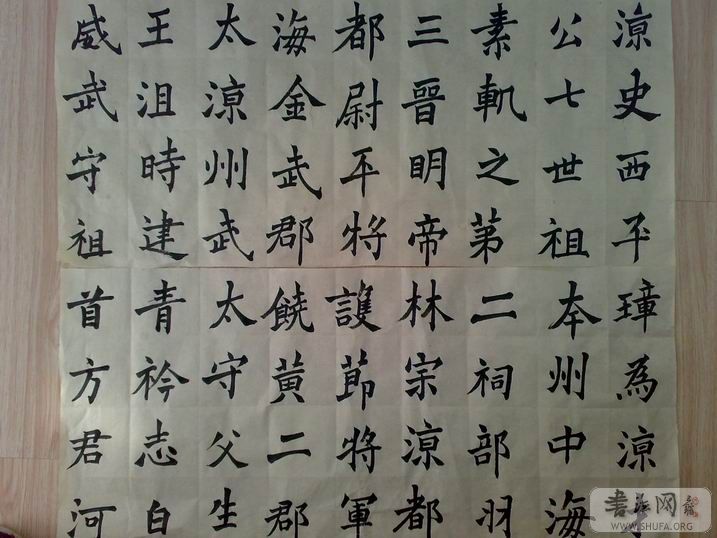 涼史西平璋為涼
公七世祖本州中海
素軌之第二祠部羽
三晉明帝林宗涼都
都尉平將護節將軍
海金武郡饒黃二郡
太涼州武太守父生
王沮時建青衿志白
威武守祖首方君河
書法网
WWW.SHUFA.ORG